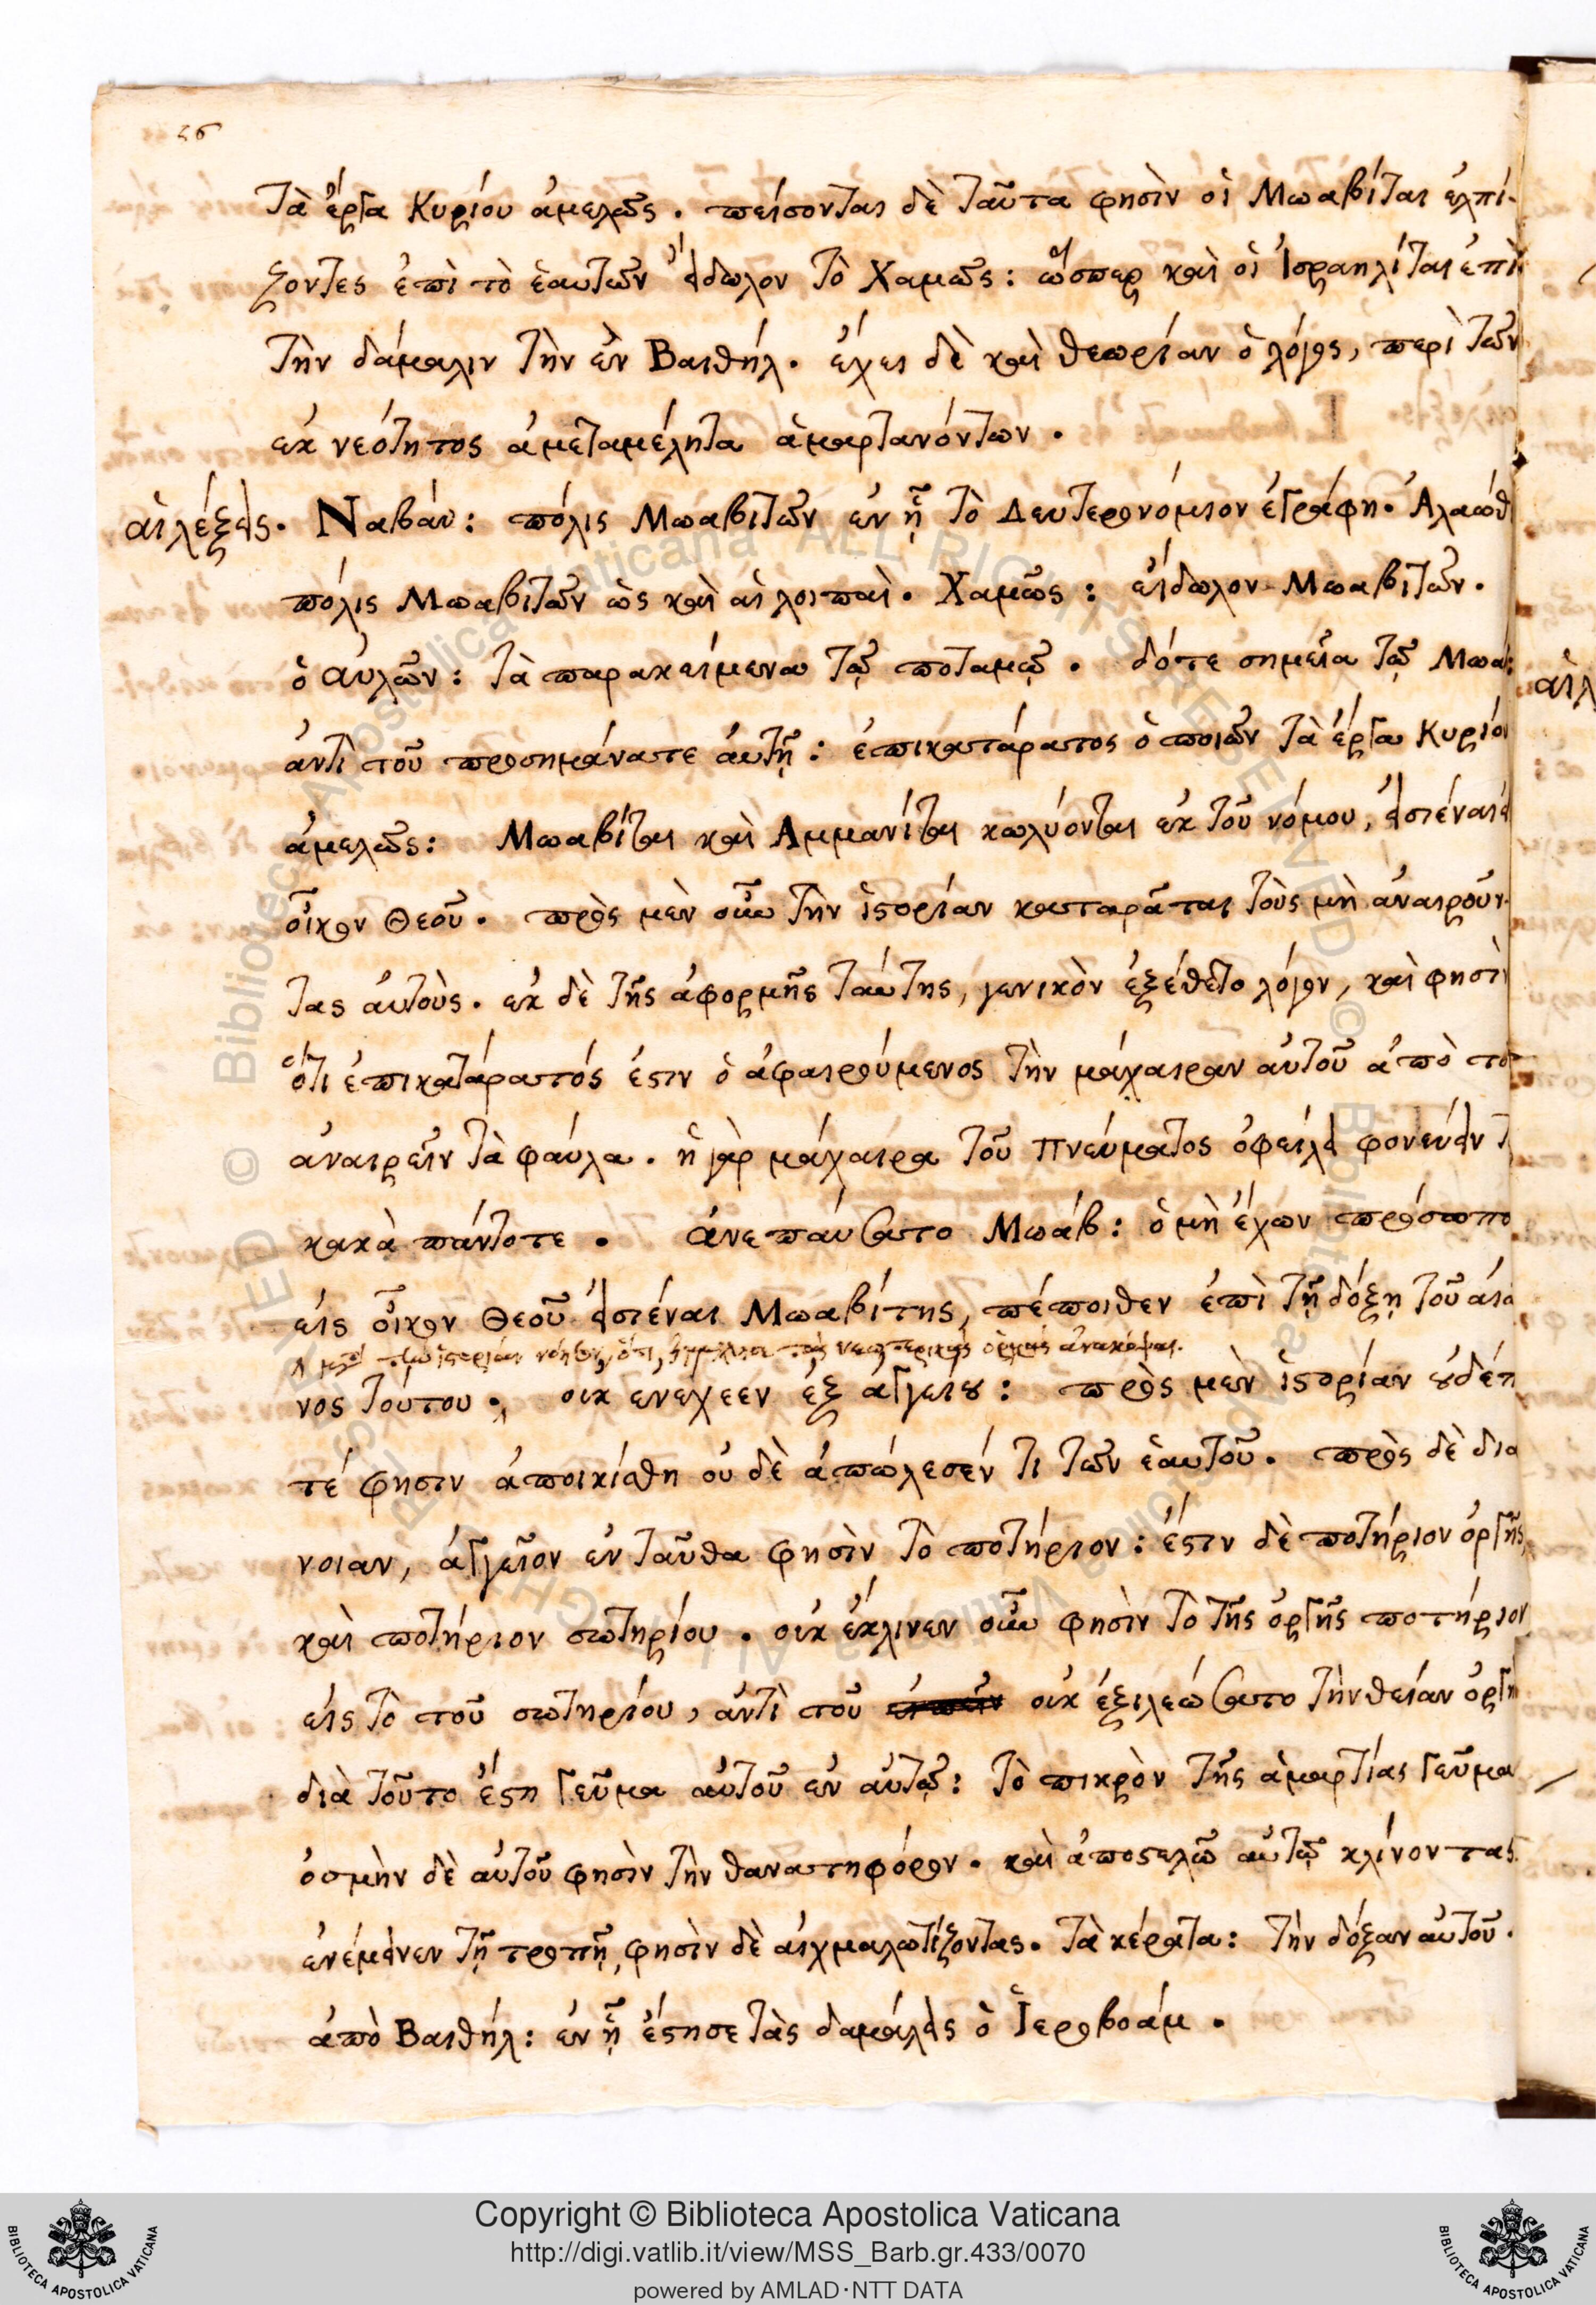 26
Τὰ ἔργα Κυρίου ἀμελῶς. πείσονται δὲ ταῦτα φησὶν οἱ Μωαβῖται ἐλπί-
ζοντες ἐπὶ τὸ ἑαυτῶν εἴδωλον τὸ Χαμῶς: ὥσπερ καὶ οἱ Ἰσραηλῖται ἐπὶ
τὴν δάμαλιν τὴν ἐν Βαιθήλ. ἔχει δὲ καὶ θεωρίαν ὁ λόγος, περὶ τῶν
ἐκ νεότητος ἀμεταμέλητα ἁμαρτανόντων.
αἱ λέξεις. Ναβάυ: πόλις Μωαβιτῶν ἐν ᾗ τὸ Δευτερονόμιον ἐγράφη. Ἀλαώθ
πόλις Μωαβιτῶν ὡς καὶ αἱ λοιπαὶ. Χαμῶς: εἴδωλον Μωαβιτῶν.
ὁ αὐλῶν: τὰ παρακείμενα τῷ ποταμῷ. δότε σημεῖα τῷ Μωα:
ἀντὶ τοῦ προσημάνατε αὐτῇ: ἐπικατάρατος ὁ ποιῶν τὰ ἔργα Κυρίου
ἀμελῶς: Μωαβῖται καὶ Ἀμμανῖται κωλύονται ἐκ τοῦ νόμου, εἰσιέναι
οἶκον Θεοῦ. πρὸς μὲν οὖν τὴν ἱστορίαν καταρᾶται τοὺς μὴ ἀναιροῦν-
τας αὐτοὺς. ἐκ δὲ τῆς ἀφορμῆς ταύτης, γενικὸν ἐξέθετο λόγον, καὶ φησὶ
ὅτι ἐπικατάρατός ἐστιν ὁ ἀφαιρούμενος τὴν μάχαιραν αὐτοῦ ἀπὸ το
ἀναιρεῖν τὰ φαύλα. ἡ γὰρ μάχαιρα τοῦ πνεύματος ὀφείλει φονεύειν τ
κακὰ πάντοτε. ἀνεπαύσατο Μωάβ: ὁ μὴ ἔχων πρόσωπο
εἰς οἶκον Θεοῦ εἰσιέναι Μωαβίτης, πέποιθεν ἐπὶ τῇ δόξῃ τοῦ αἰῶ
τὴν ἱστορίαν ὅτι τὰς νεωτερικὰς ὁρμὰς ἀνακόψαι.
νος τούτου. οὐκ ἐνέχεεν ἐξ ἀγγείου: πρὸς μὲν ἱστορίαν οὐδέπ
τέ φησιν ἀποικίσθη οὐ δὲ ἀπώλεσέν τι τῶν ἑαυτοῦ. πρὸς δὲ δια
νοιαν, ἀγγεῖον ἐνταῦθα φησὶν τὸ ποτήριον: ἔστιν δὲ ποτήριον ὀργῆς,
καὶ ποτήριον σωτηρίου. οὐκ ἔκλινεν οὖν φησὶν τὸ τῆς ὀργῆς ποτήριον
εἰς τὸ τοῦ σωτηρίου, ἀντὶ τοῦ οὐκ ἐξιλεώσατο τὴν θείαν ὀργὴ
διὰ τοῦτο ἔστη γεῦμα αὐτοῦ ἐν αὐτῷ: τὸ πικρὸν τῆς ἁμαρτίας γεῦμα
ὀσμὴν δὲ αὐτοῦ φησὶν τὴν θανατηφόρον. καὶ ἀποστελῶ αὐτῷ κλίνοντας
ἐνέμεινεν τῇ τροπῇ, φησὶν δὲ αἰχμαλωτίζοντας. τὰ κέρατα: τὴν δόξαν αὐτοῦ.
ἀπὸ Βαιθήλ: ἐν ᾗ ἔστησε τὰς δαμάλεις ὁ Ἱεροβοάμ.
αἱ λ
Copyright © Biblioteca Apostolica Vaticana
http://digi.vatlib.it/view/MSS_Barb.gr.433/0070
powered by AMLAD·NTT DATA
BIBLIOTECA APOSTOLICA VATICANA
BIBLIOTECA APOSTOLICA VATICANA